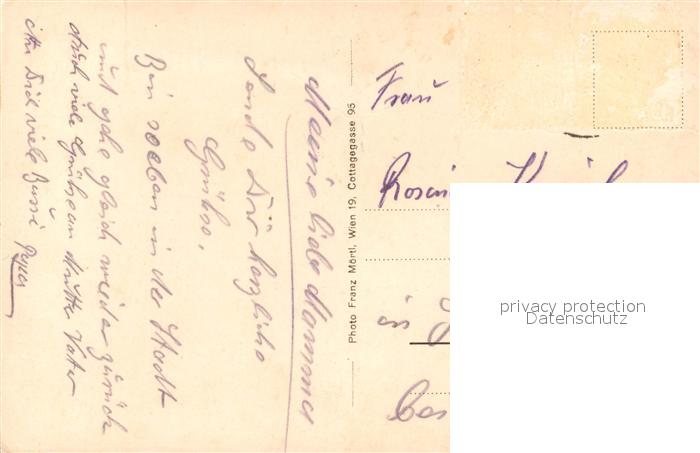 Meine liebe Mamma
Sende Dir herzliche
Grüße.
Bin soeben in der Stadt
und gehe gleich wieder zurück
Auch viele Grüße an Mutter Vater
an Dich viele Bussi
Photo Franz Mörtl, Wien 19, Cottagegasse 95
Frau
in
privacy protection
Datenschutz